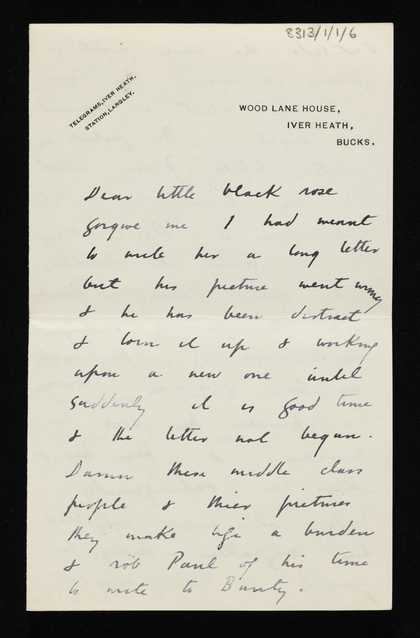 8313/1/1/6
TELEGRAMS, IVER HEATH.
STATION, LANGLEY.
WOOD LANE HOUSE,
IVER HEATH,
BUCKS.
Dear little black rose
forgive me I had meant
to write her a long letter
but his picture went wrong
& he has been distract
& torn it up & working
upon a new one until
suddenly it is good time
& the letter not begun.
Damn these middle class
people & their pictures
they make life a burden
& rob Paul of his time
to write to Bunty.